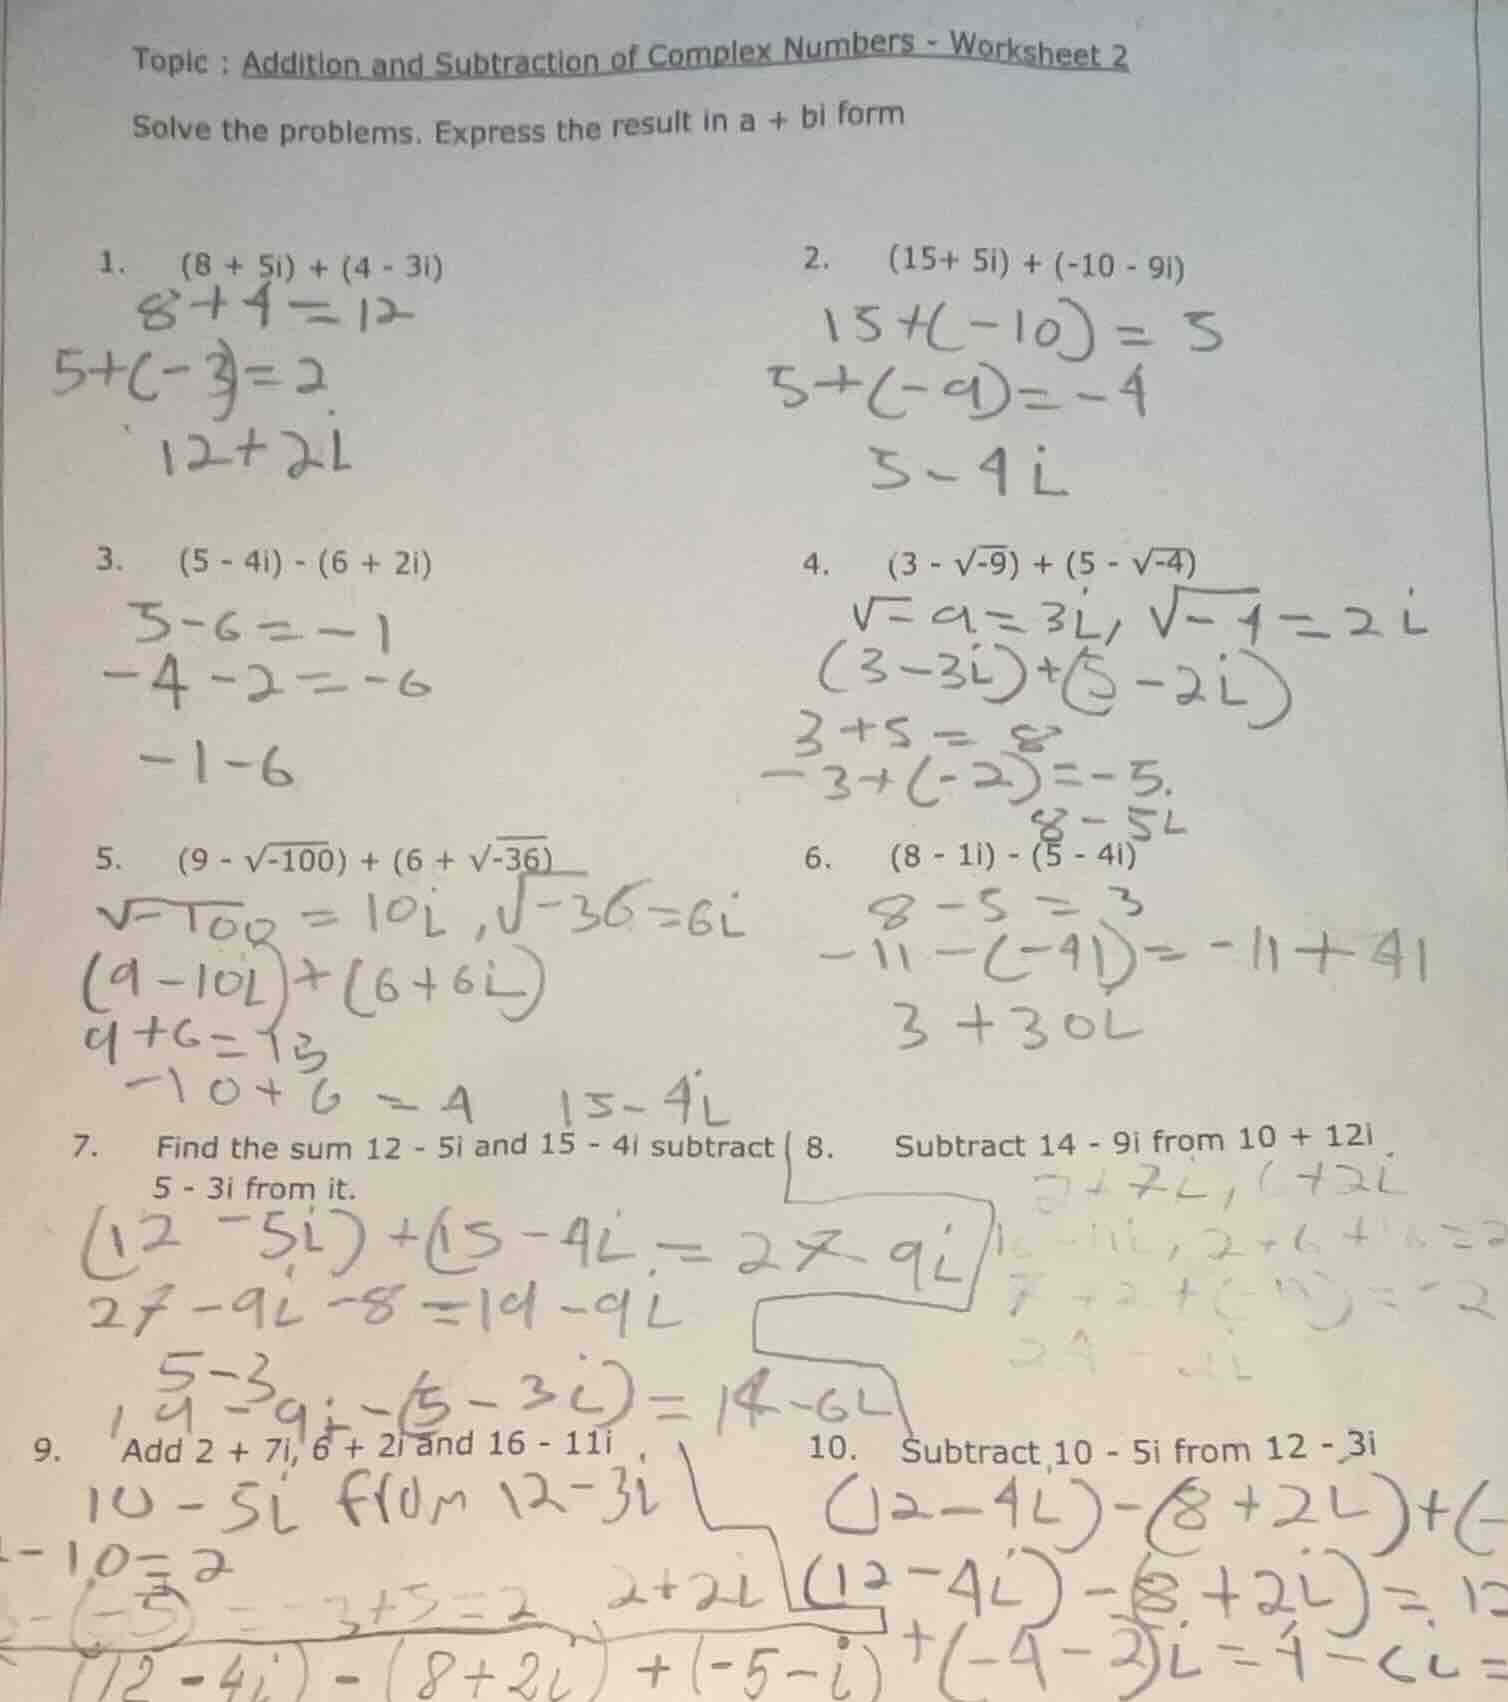 Topic : Addition and Subtraction of Complex Numbers - Worksheet 2
Solve the problems. Express the result in a + bi form
1. (8 + 5i) + (4 - 3i)
8+4=12
5+(-3)=2
12+2i
2. (15+ 5i) + (-10 - 9i)
15+(-10) = 5
5+(-9)=-4
5-4i
3. (5 - 4i) - (6 + 2i)
5-6=-1
-4-2=-6
-1-6
4. (3 - √-9) + (5 - √-4)
√-9=3i, √-4=2i
(3-3i)+(5-2i)
3+5=8
-3+(-2)=-5.
8-5i
5. (9 - √-100) + (6 + √-36)
√-100=10i, √-36=6i
(9-10i)+(6+6i)
9+6=13
-10+6=4 15-4i
6. (8 - 1i) - (5 - 4i)
8-5=3
-11-(-41)=-11+41
3+30i
7. Find the sum 12 - 5i and 15 - 4i subtract
5 - 3i from it.
(12-5i)+(15-4i=27-9i
27-9i-8=19-9i
5-3
19-9i-(5-3i)=14-6i
8. Subtract 14 - 9i from 10 + 12i
2+7i, +2i
-11i, 2+6+ =2
7+2+(-11)=-2
24-2i
9. Add 2 + 7i, 6 + 2i and 16 - 11i
10-5i from 12-3i
-10=2
-(-5)=-3+5=2 2+2i
(12-4i)-(8+2i)+(-5-i)
10. Subtract 10 - 5i from 12 - 3i
(12-4i)-(8+2i)+(-
(12-4i)-(8+2i)=12
+(-4-2)i=4-6i=